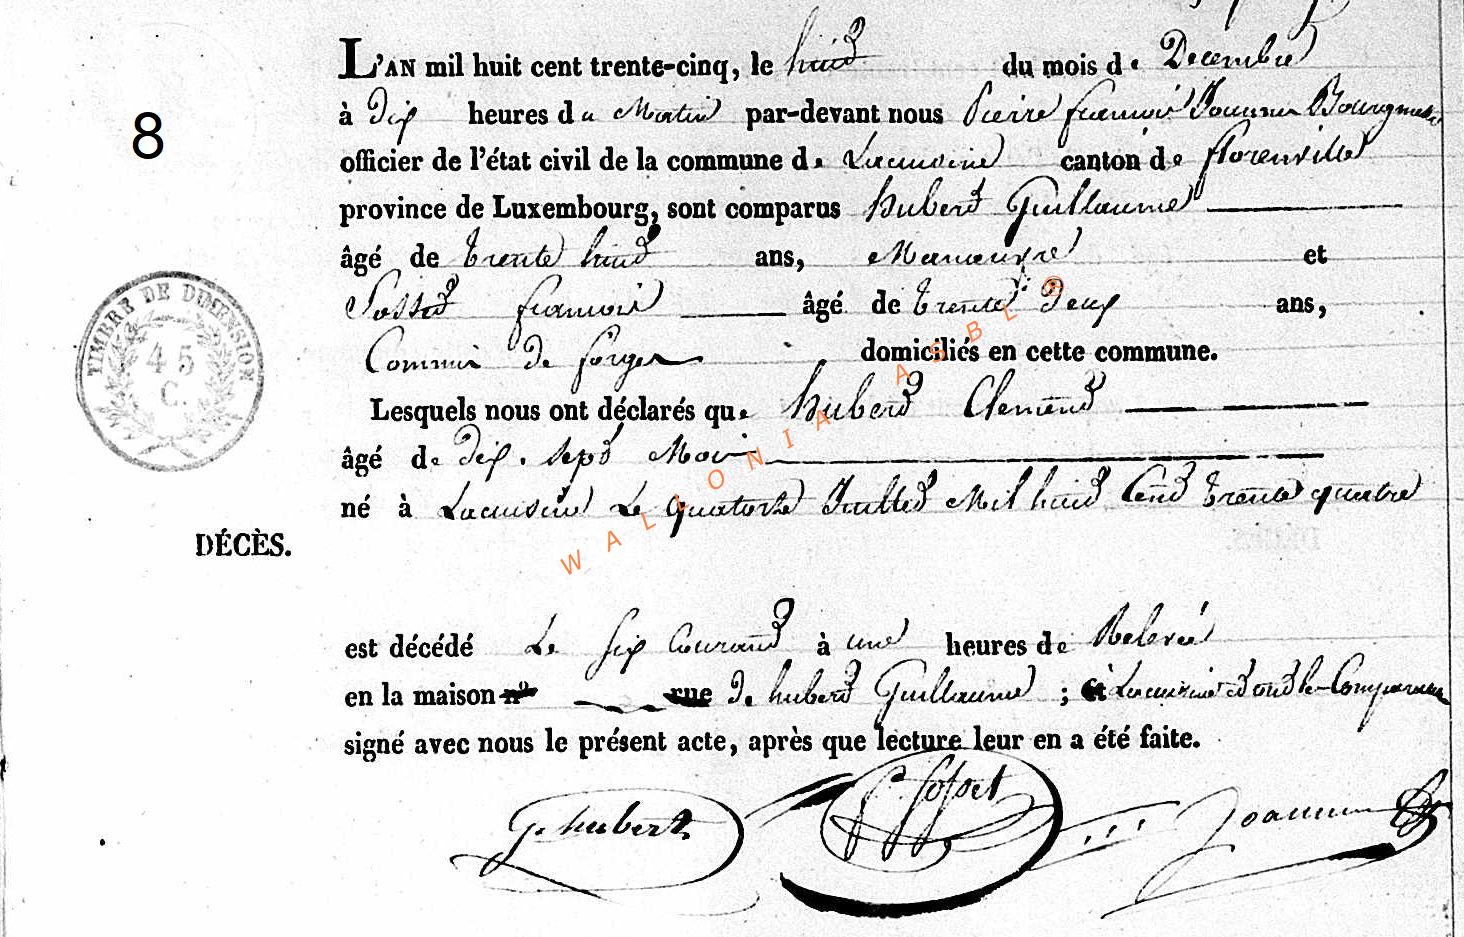 8
L'AN mil huit cent trente-cinq, le huit du mois de Decembre
à Dix heures du Matin par-devant nous Pierre francois Joannes Bourgmest
officier de l'état civil de la commune de Lacuisine canton de florenville
province de Luxembourg, sont comparus hubert Guillaume
âgé de trente huit ans, Manœuvre et
Posset francois âgé de trente Deux ans,
Commis de forges domiciliés en cette commune.
Lesquels nous ont déclarés que hubert Clement
âgé de Dix sept Mois
né à Lacuisine Le quatorze Juillet Mil huit Cent trente quatre
DÉCÈS.
est décédé Le Six Courant à une heures de Relevée
en la maison n° rue De hubert Guillaume ; à Lacuisine Et ont les Comparans
signé avec nous le présent acte, après que lecture leur en a été faite.
G. hubert
TIMBRE DE DIMENSION
45
C.
WALLONIA ASBL ®